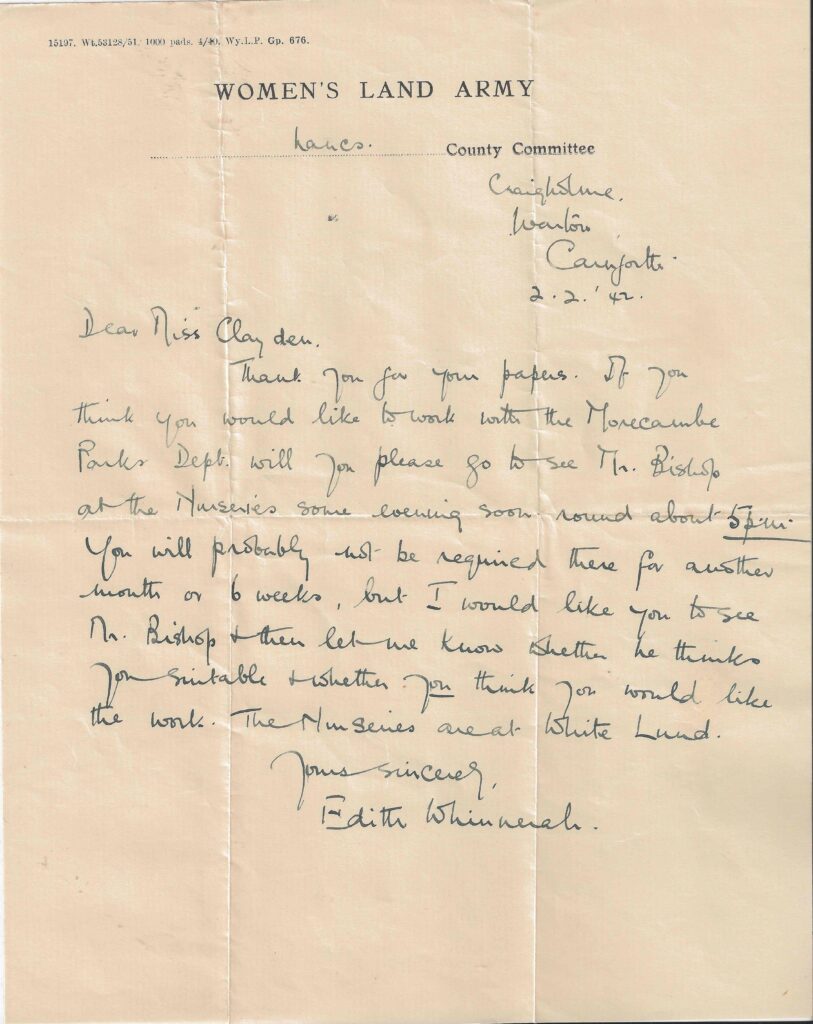 15197. Wt.53128/51. 1000 pads. 4/40. Wy.L.P. Gp. 676.
WOMEN'S LAND ARMY
Lancs. County Committee
Craigholme,
Warton,
Carnforth.
2.2.'42.
Dear Miss Clayden,
Thank you for your papers. If you
think you would like to work with the Morecambe
Parks Dept. will you please go to see Mr. Bishop
at the Nurseries some evening soon round about 5 p.m.
You will probably not be required there for another
month or 6 weeks, but I would like you to see
Mr. Bishop & then let me know whether he thinks
you suitable & whether you think you would like
the work. The Nurseries are at White Lund.
Yours sincerely,
Edith Whinnerah.